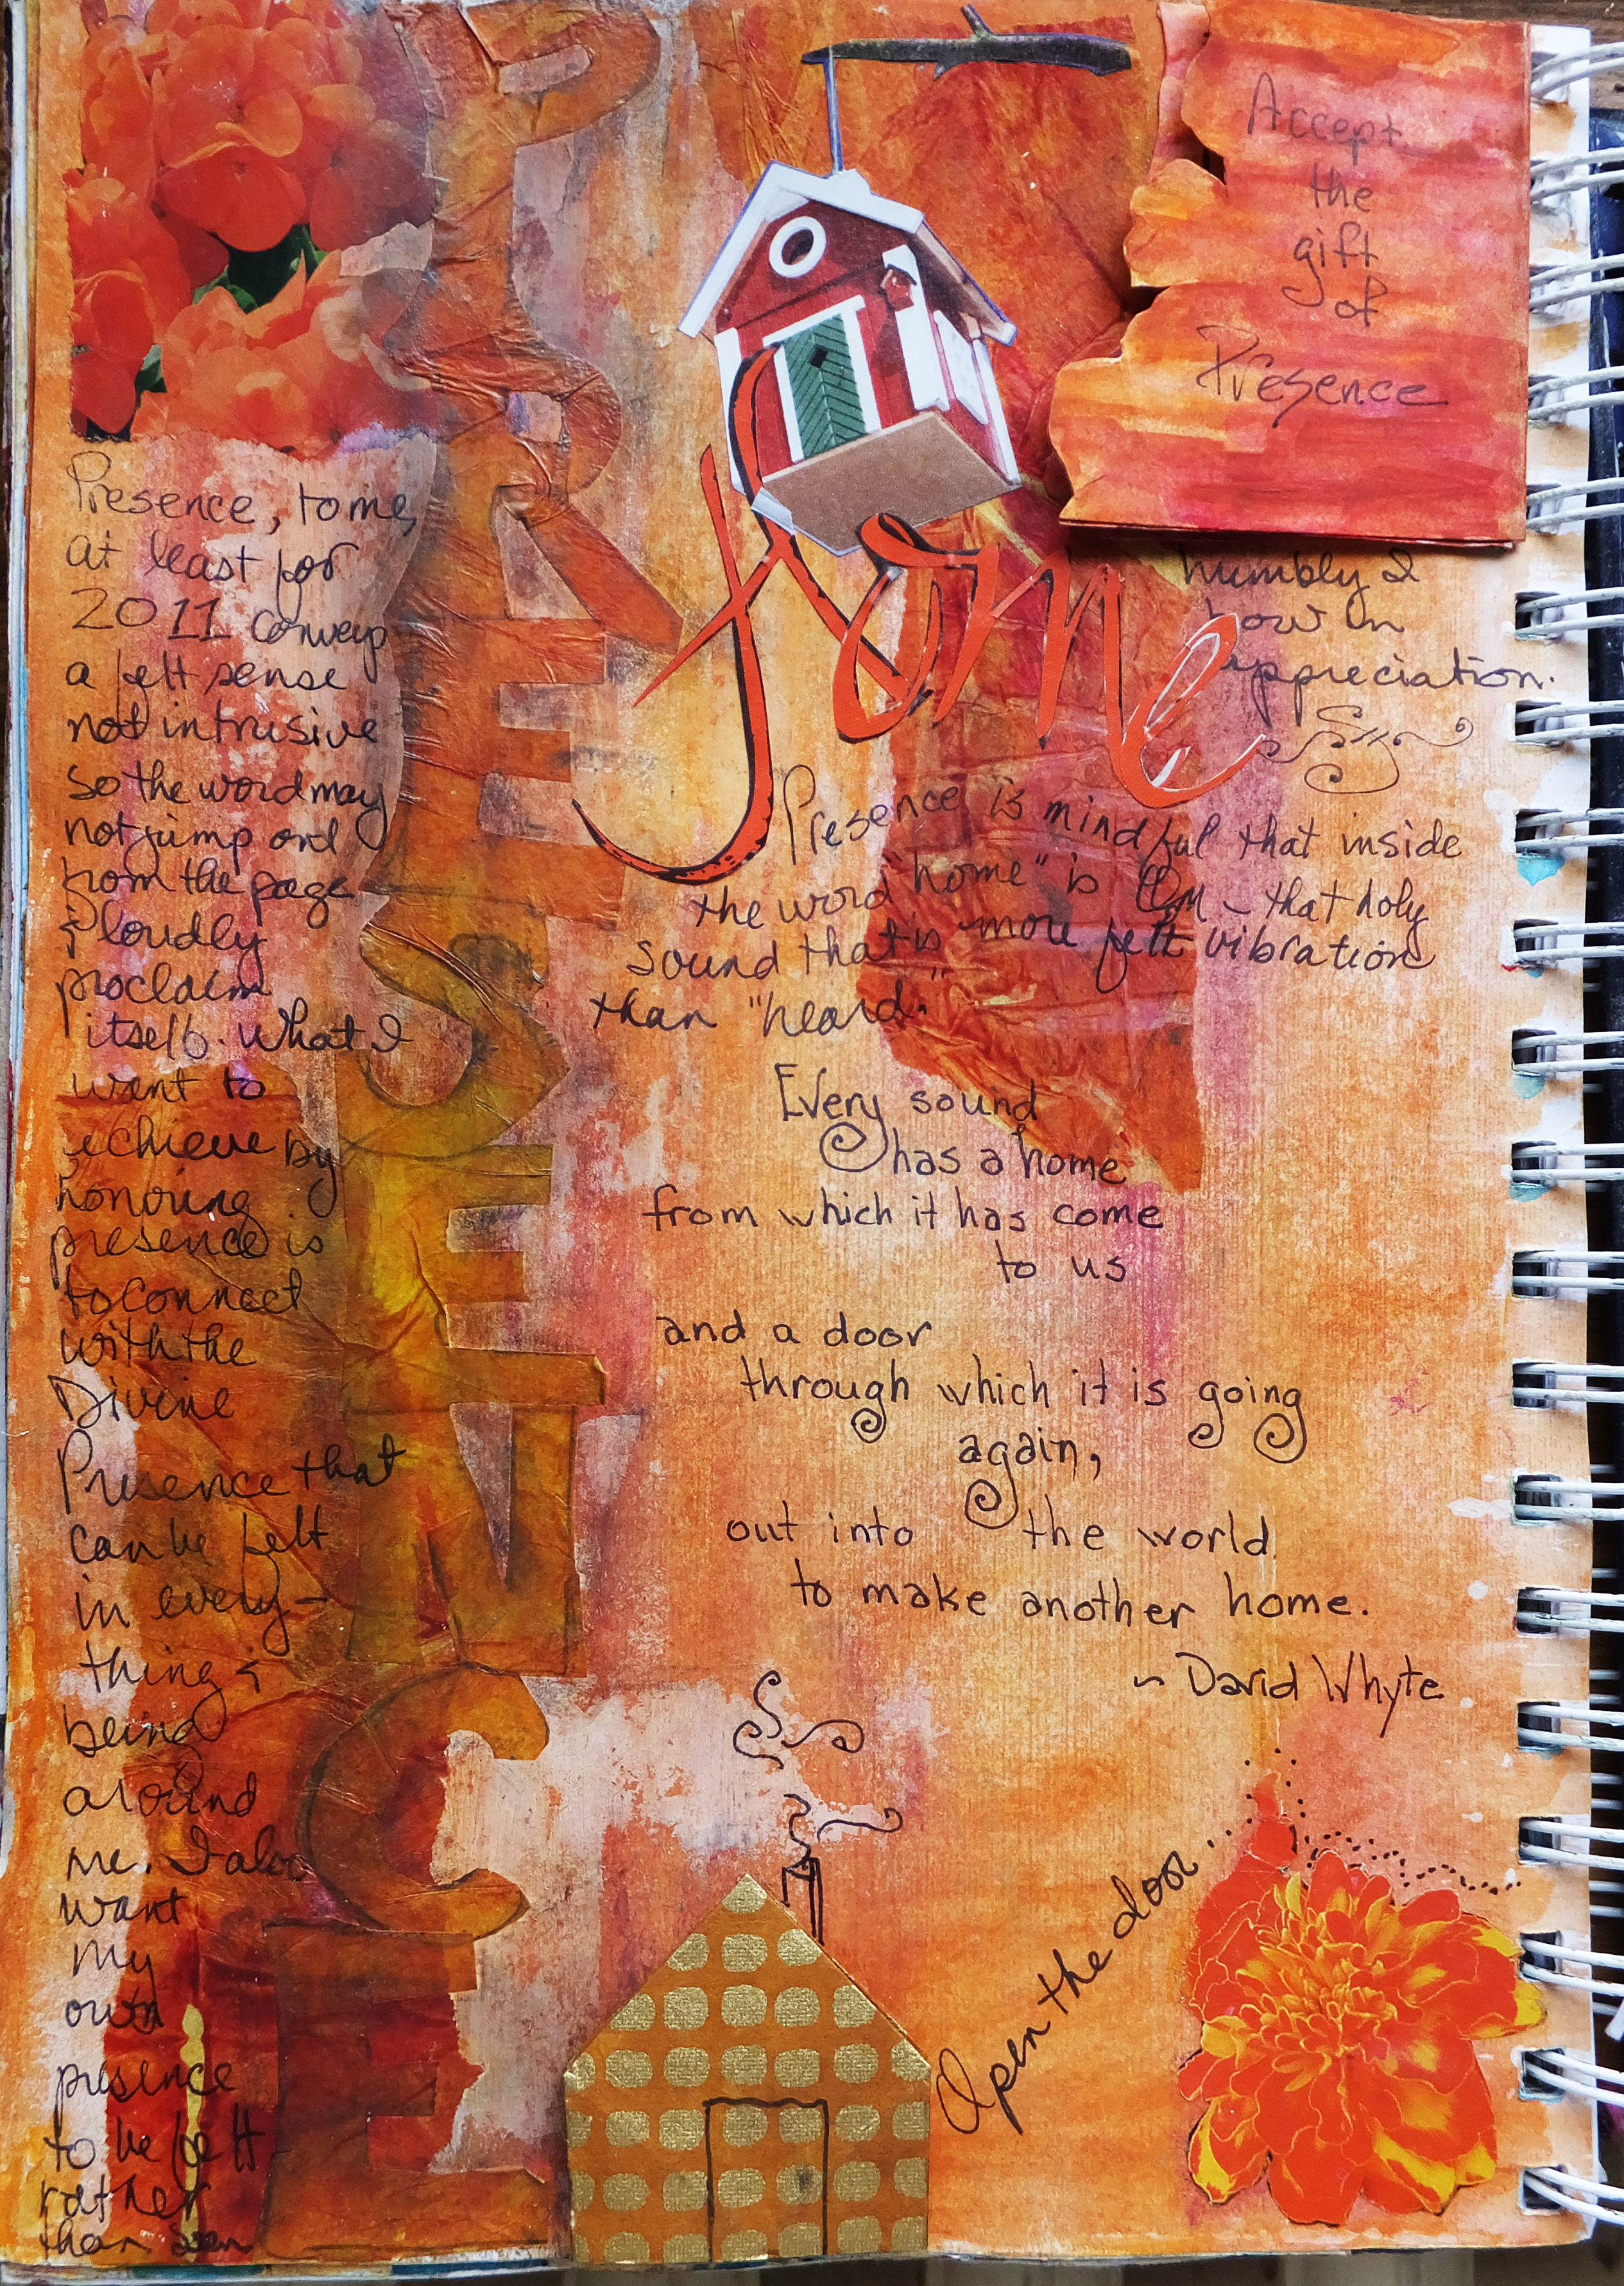 PRESENCE
Presence, to me,
at least for
2011 conveys
a felt sense
not intrusive
so the word may
not jump out
from the page
& loudly
proclaim
itself. What I
want to
achieve by
honoring
presence is
to connect
with the
Divine
Presence that
can be felt
in every-
thing &
being
around
me. I also
want
my
own
presence
to be felt
rather
than seen
Accept
the
gift
of
Presence
humbly I
bow in
appreciation.
Home
Presence is mindful that inside
the word "home" is Om ~ that holy
sound that is more felt vibration
than "heard."
Every sound
has a home
from which it has come
to us
and a door
through which it is going
again,
out into the world
to make another home.
~ David Whyte
Open the door...